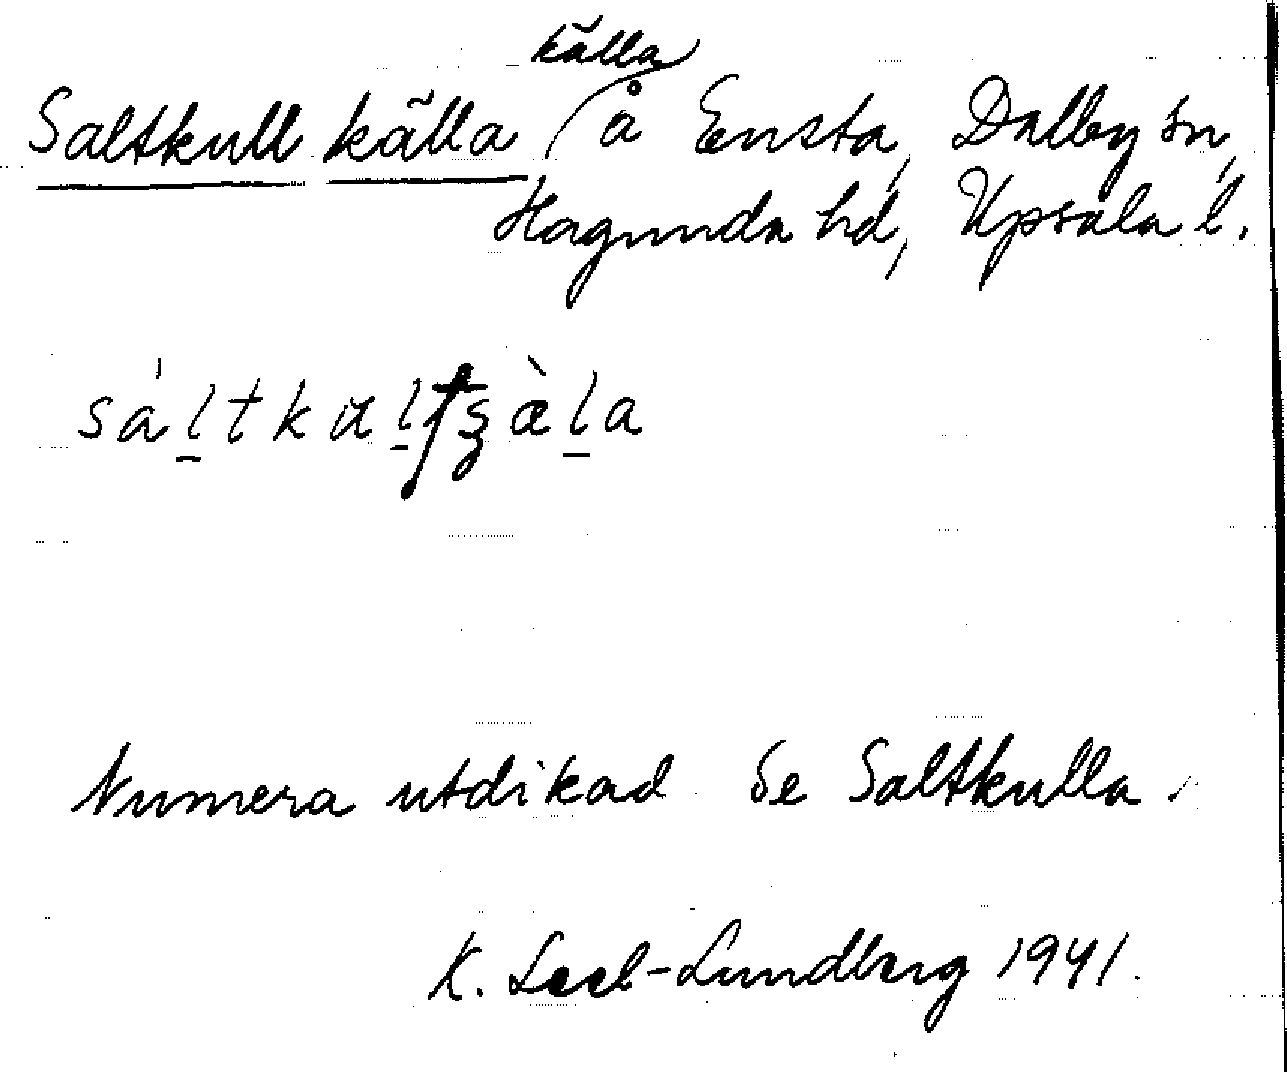 källa
Saltkull källa å Ensta, Dalby sn,
Hagunda hd, Upsala l.
sáltkulʂæ̀la
Numera utdikad. Se Saltkulla.
K. Leel-Lundberg 1941.